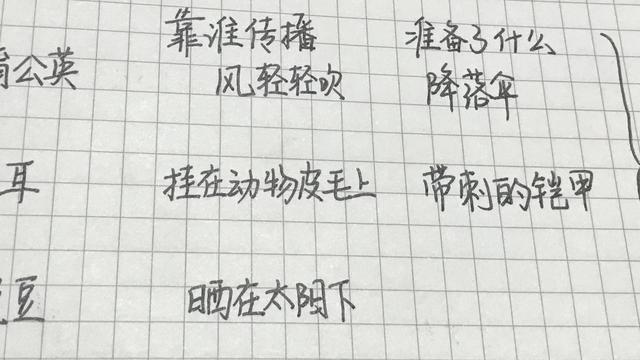 靠谁传播 准备了什么
公英 风轻轻吹 降落伞
耳 挂在动物皮毛上 带刺的铠甲
豆 晒在太阳下